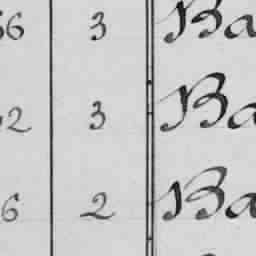 6 3 Ba
2 3 Ba
6 2 Ba